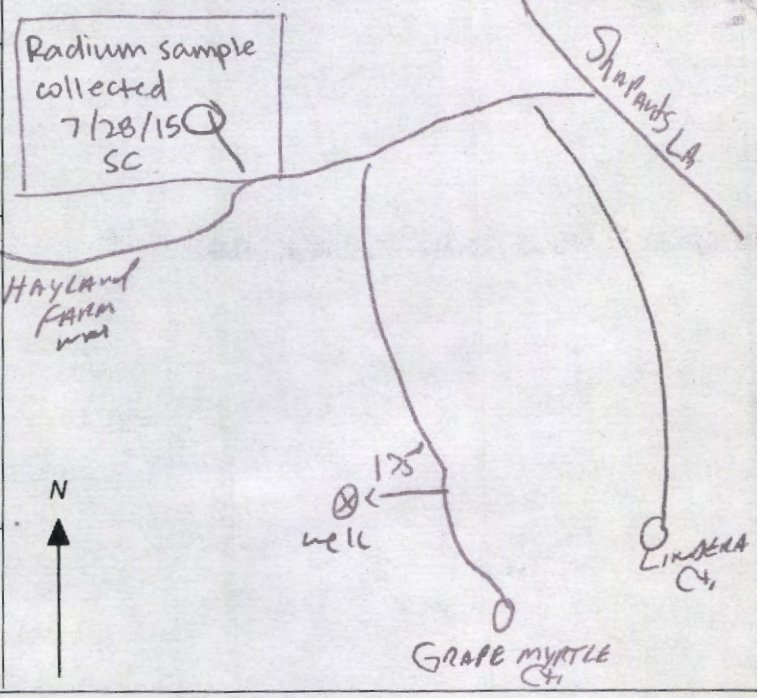 Radium sample
collected
7/28/15
SC
HAYLAND
FARM
N
175'
well
LINDERA
Ct.
GRAPE MYRTLE
Ct.